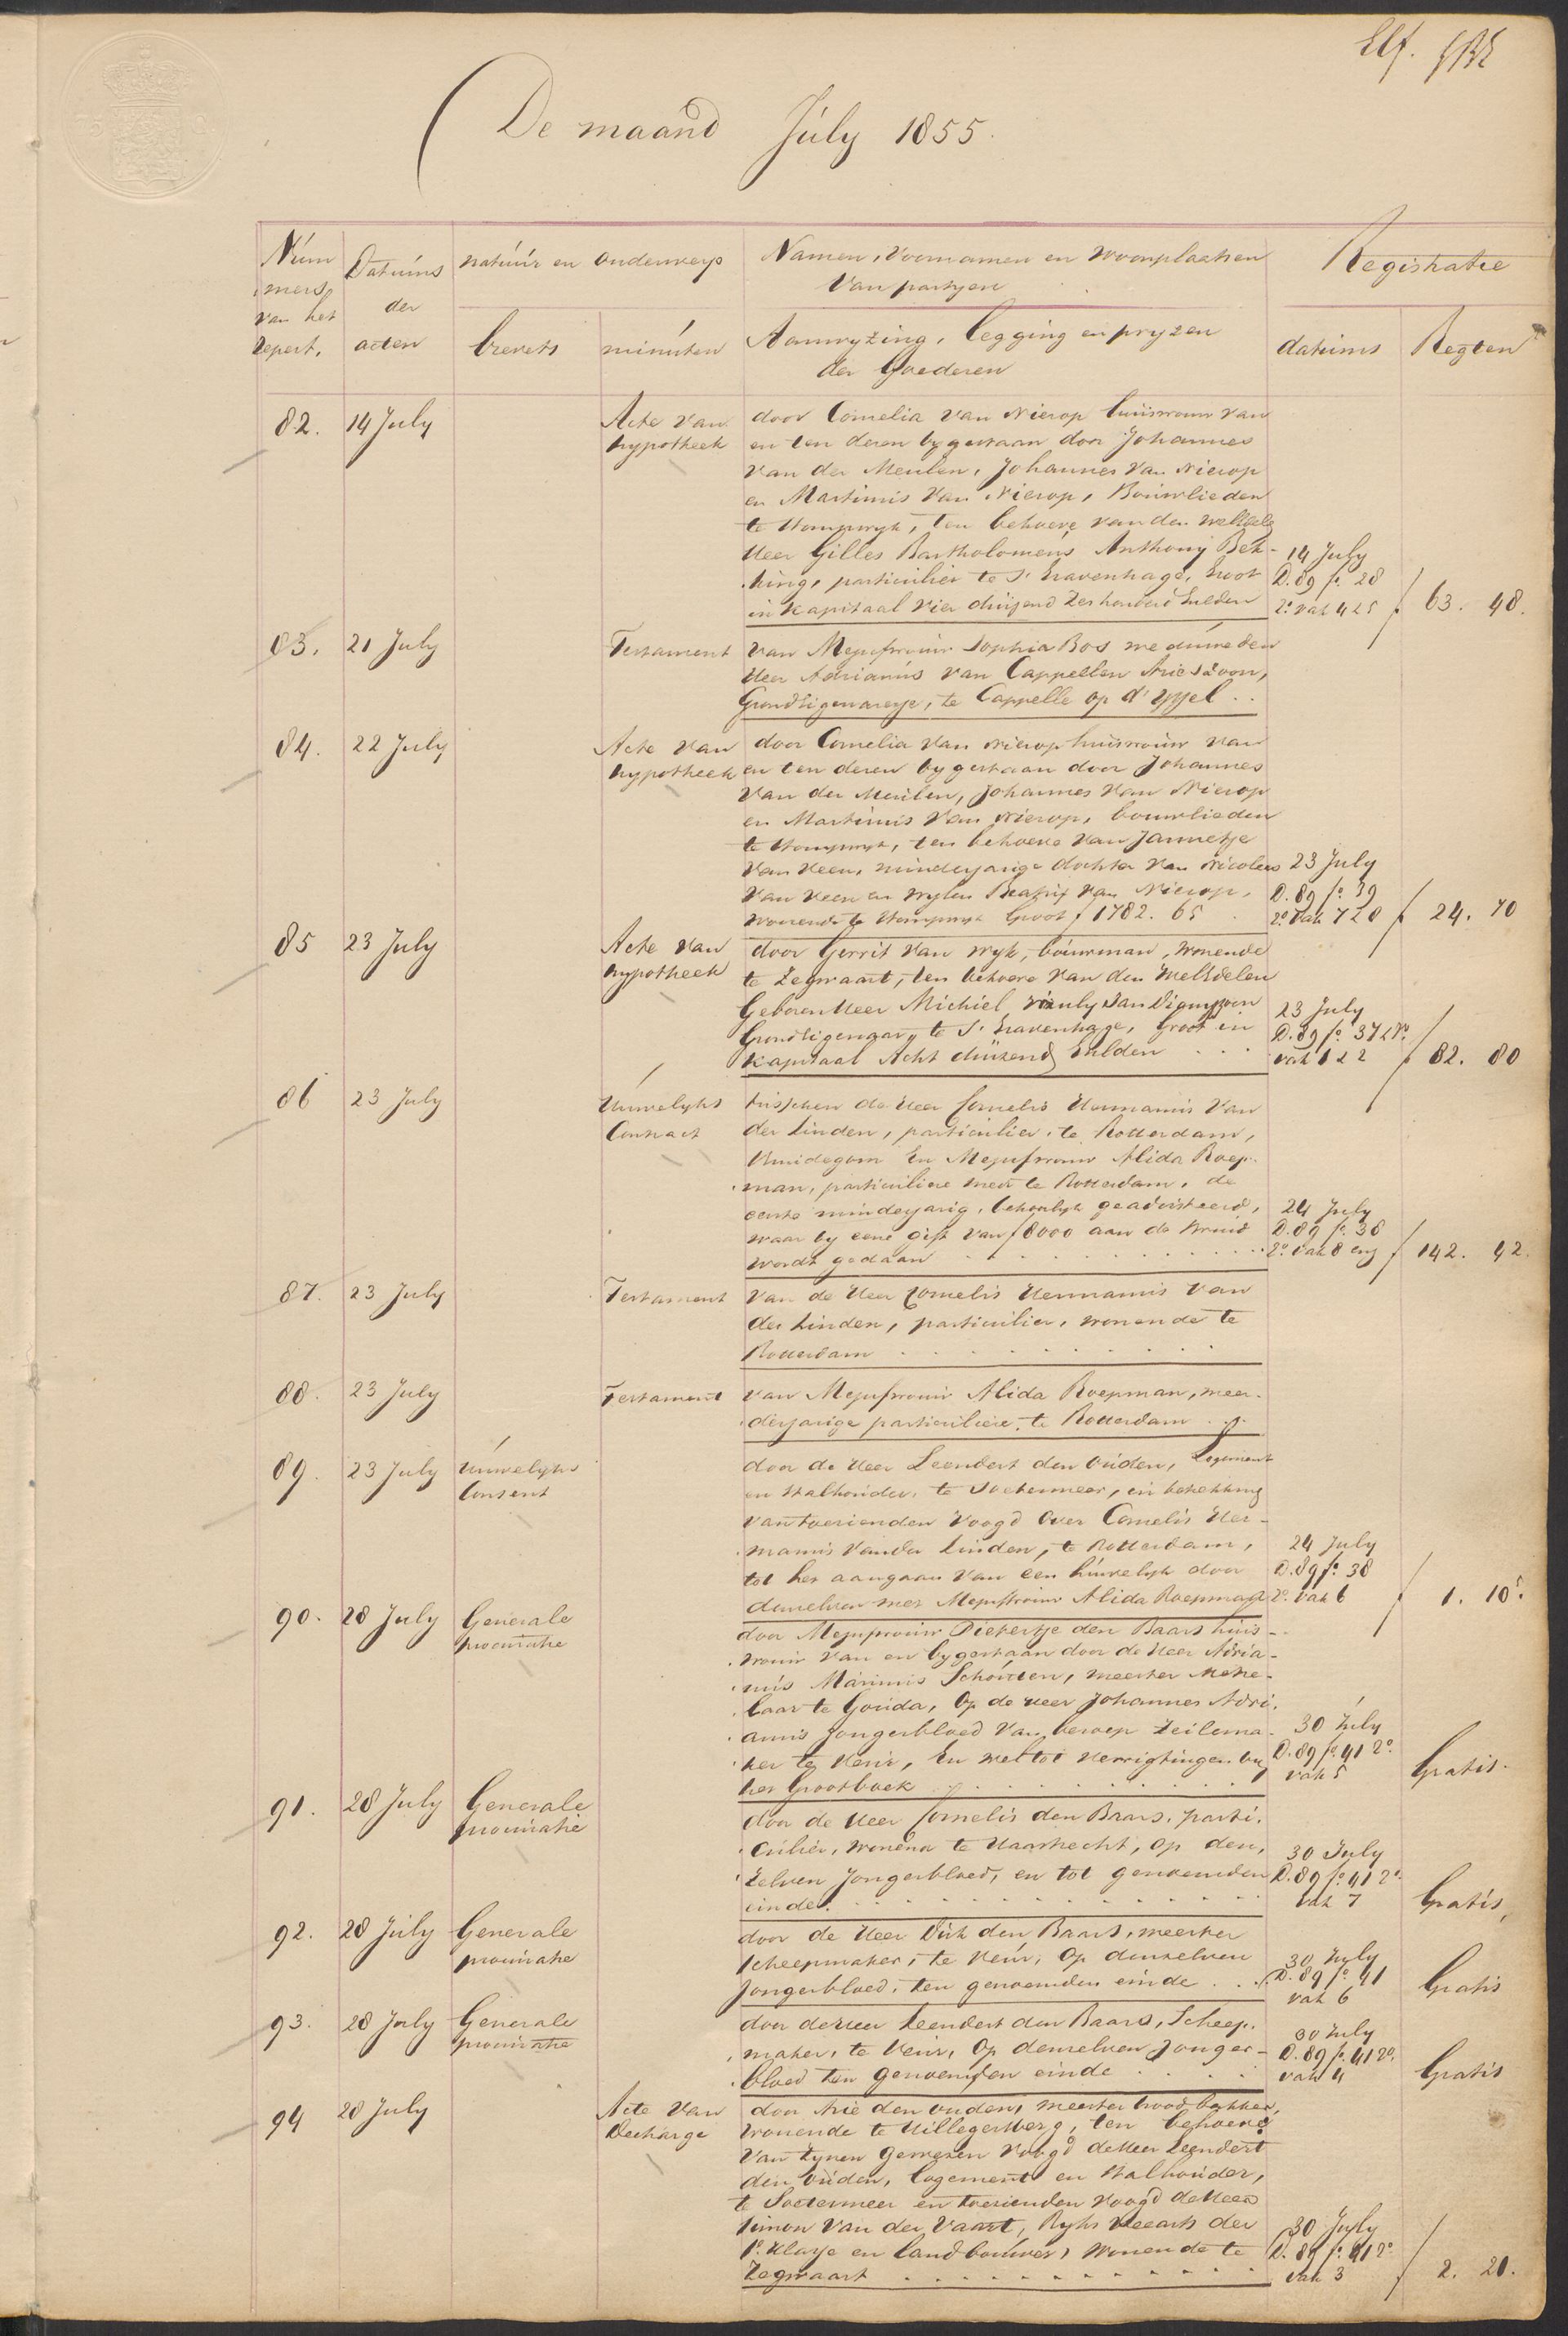 Elf.
De maand July 1855.
Núm
mers
van het
Repert.
Datúms
der
acten
natúúr en onderwerp
brevets
minúten
Namen, Voornamen en Woonplaatsen
van partyen
Aanwyzing, legging en pryzen
der Goederen
Registratie
datúms
Regten
82. 14 July
Acte van
hypotheek
door Cornelia van Nierop huisvrouw van
en ten deren bygestaan door Johannes
van der Meulen, Johannes van Nierop
en Martinús van Nierop, Bouwlieden
te Stompwyk, ten behoeve van den
Heer Gilles Bartholomeús Anthony Bek-
king, particúlier te s' Gravenhage, Groot
in Kapitaal vier duizend Zes honderd Gulden
14 July
D. 89 fo. 28
2o. vak 4 25
f 63. 48.
83. 21 July
Testament
van Mejufvrouw Sophia Bos weduwe den
Heer Adrianús van Cappellen Arieszoon,
Grondeigenaresse, te Cappelle op d' Yssel . .
84. 22 July
Acte van
hypotheek
door Cornelia van Nierop huisvrouw van
en ten deren bygestaan door Johannes
van der Meulen, Johannes van Nierop
en Martinús van Nierop, bouwlieden
te Stompwyk, ten behoeve van Jannetje
van Veen, minderjarige dochter van Nicolaas
van Veen en wylen Beatrix van Nierop,
wonende te Stompwyk Groot f 1782. 65
23 July
D. 89 fo. 39
2o. vak 7 2 8
f 24. 70
85 23 July
Acte van
hypotheek
door Gerrit van Wyk, bouwman, wonende
te Zegwaart, ten behoeve van den WelEdelen
Geboren Heer Michiel
Grondeigenaar, te S' Gravenhage, Groot in
Kapitaal Acht duizend Gulden . . .
23 July
D. 89 fo. 37
vak 1 2 2
f 82. 80
86 23 July
Huwelyks
Contract
tusschen de Heer Cornelis Hermanús van
der Linden, particúlier, te Rotterdam,
Bruidegom En Mejufvrouw Alida Roep-
man, particuliere mede te Rotterdam, de
eerste minderjarig, behoorlyk geadsisteerd,
waar by eene gift van f 8000 aan de Bruid
wordt gedaan . . . . . . . . . .
24 July
D. 89 fo. 38
2o. vak 8 en
f 142. 42.
87. 23 July
Testament
van de Heer Cornelis Hermanús van
der Linden, particúlier, wonende te
Rotterdam . . . . . . . . . .
88. 23 July
Testament
van Mejufvrouw Alida Roepman, meer-
derjarige particuliere, te Rotterdam . . .
89. 23 July
Huwelyks
Consent
door de Heer Leendert den Oúden, Logement
en Stalhouder, te Soetermeer, in betrekking
van toezienden Voogd over Cornelis Her-
manús van der Linden, te Rotterdam,
tot het aangaan van een húwelyk door
denzelven met Mejufvrouw Alida Roepman
24 July
D. 89 fo. 38
2o. vak 6
f 1. 10 5.
90. 28 July
Generale
procúratie
door Mejufvrouw Pietertje den Baars huis-
vrouw van en bygestaan door de Heer Adria-
nús Marinús Schoúten, meester Metse-
laar te Gouda, Op de Heer Johannes Adri-
anus Jongerbloed van beroep Zeilema-
ker te Veúr, En wel tot verrigtingen by
het Grootboek . . . . . . . . . .
30 July
D. 89 fo. 41 2o.
vak 5
Gratis.
91. 28 July
Generale
procúratie
door de Heer Cornelis den Baars, parti-
culier, wonend te Haastrecht, op den-
zelven Jongerbloed, en tot genoemden
einde. . . . . . . . . . . .
30 July
D. 89 fo. 41 2o.
vak 7
Gratis,
92. 28 July
Generale
procúratie
door de Heer Dirk den Baars, meester
scheepmaker, te Veúr, Op denzelven
Jongerbloed, ten genoemden einde . . .
30 July
D. 89 fo. 41
vak 6
Gratis
93. 28 July
Generale
procúratie
door de Heer Leendert den Baars, Scheep-
maker, te Veúr, Op denzelven Jonger-
bloed ten genoemden einde . . . .
30 July
D. 89 fo. 41 2o.
vak 4
Gratis
94 28 July
Acte van
Decharge
door Arie den oúden, meester broodbakker,
wonende te Hillegersberg, ten behoeve
van zynen gewezen Voogd de Heer Leendert
den Oúden, logement en Stalhouder,
te Soetermeer en toezienden Voogd de Heer
Simon van der Vaart, Ryks Veearts der
1e. Klasse en landbouwer, wonende te
Zegwaart . . . . . . . . . .
30 July
D. 89 fo. 41 2o
vak 3
f 2. 21.